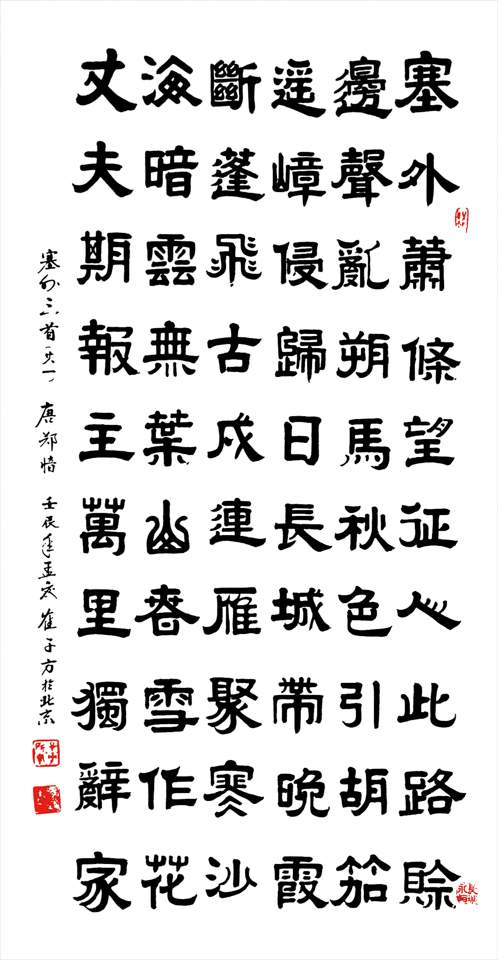 塞外蕭條望征心此路賒
邊聲亂朔馬秋色引胡笳
遙嶂侵歸日長城帶晚霞
斷蓬飛古戍連雁聚寒沙
海暗雲無葉山春雪作花
丈夫期報主萬里獨辭家
塞外三首其一 唐 郑愔 壬辰年孟夏 崔子方於北京